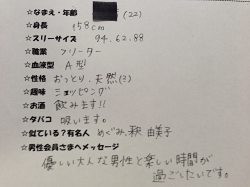 ☆なまえ・年齢 (22)
☆身長 158cm
☆スリーサイズ 94.62.88
☆職業 フリーター
☆血液型 A型
☆性格 おっとり、天然(?)
☆趣味 ショッピング
☆お酒 飲みます!!
☆タバコ 吸います。
☆似ている?有名人 めぐみ、釈 由美子
☆男性会員さまへメッセージ
優しい大人な男性と楽しい時間が
過ごしたいです。